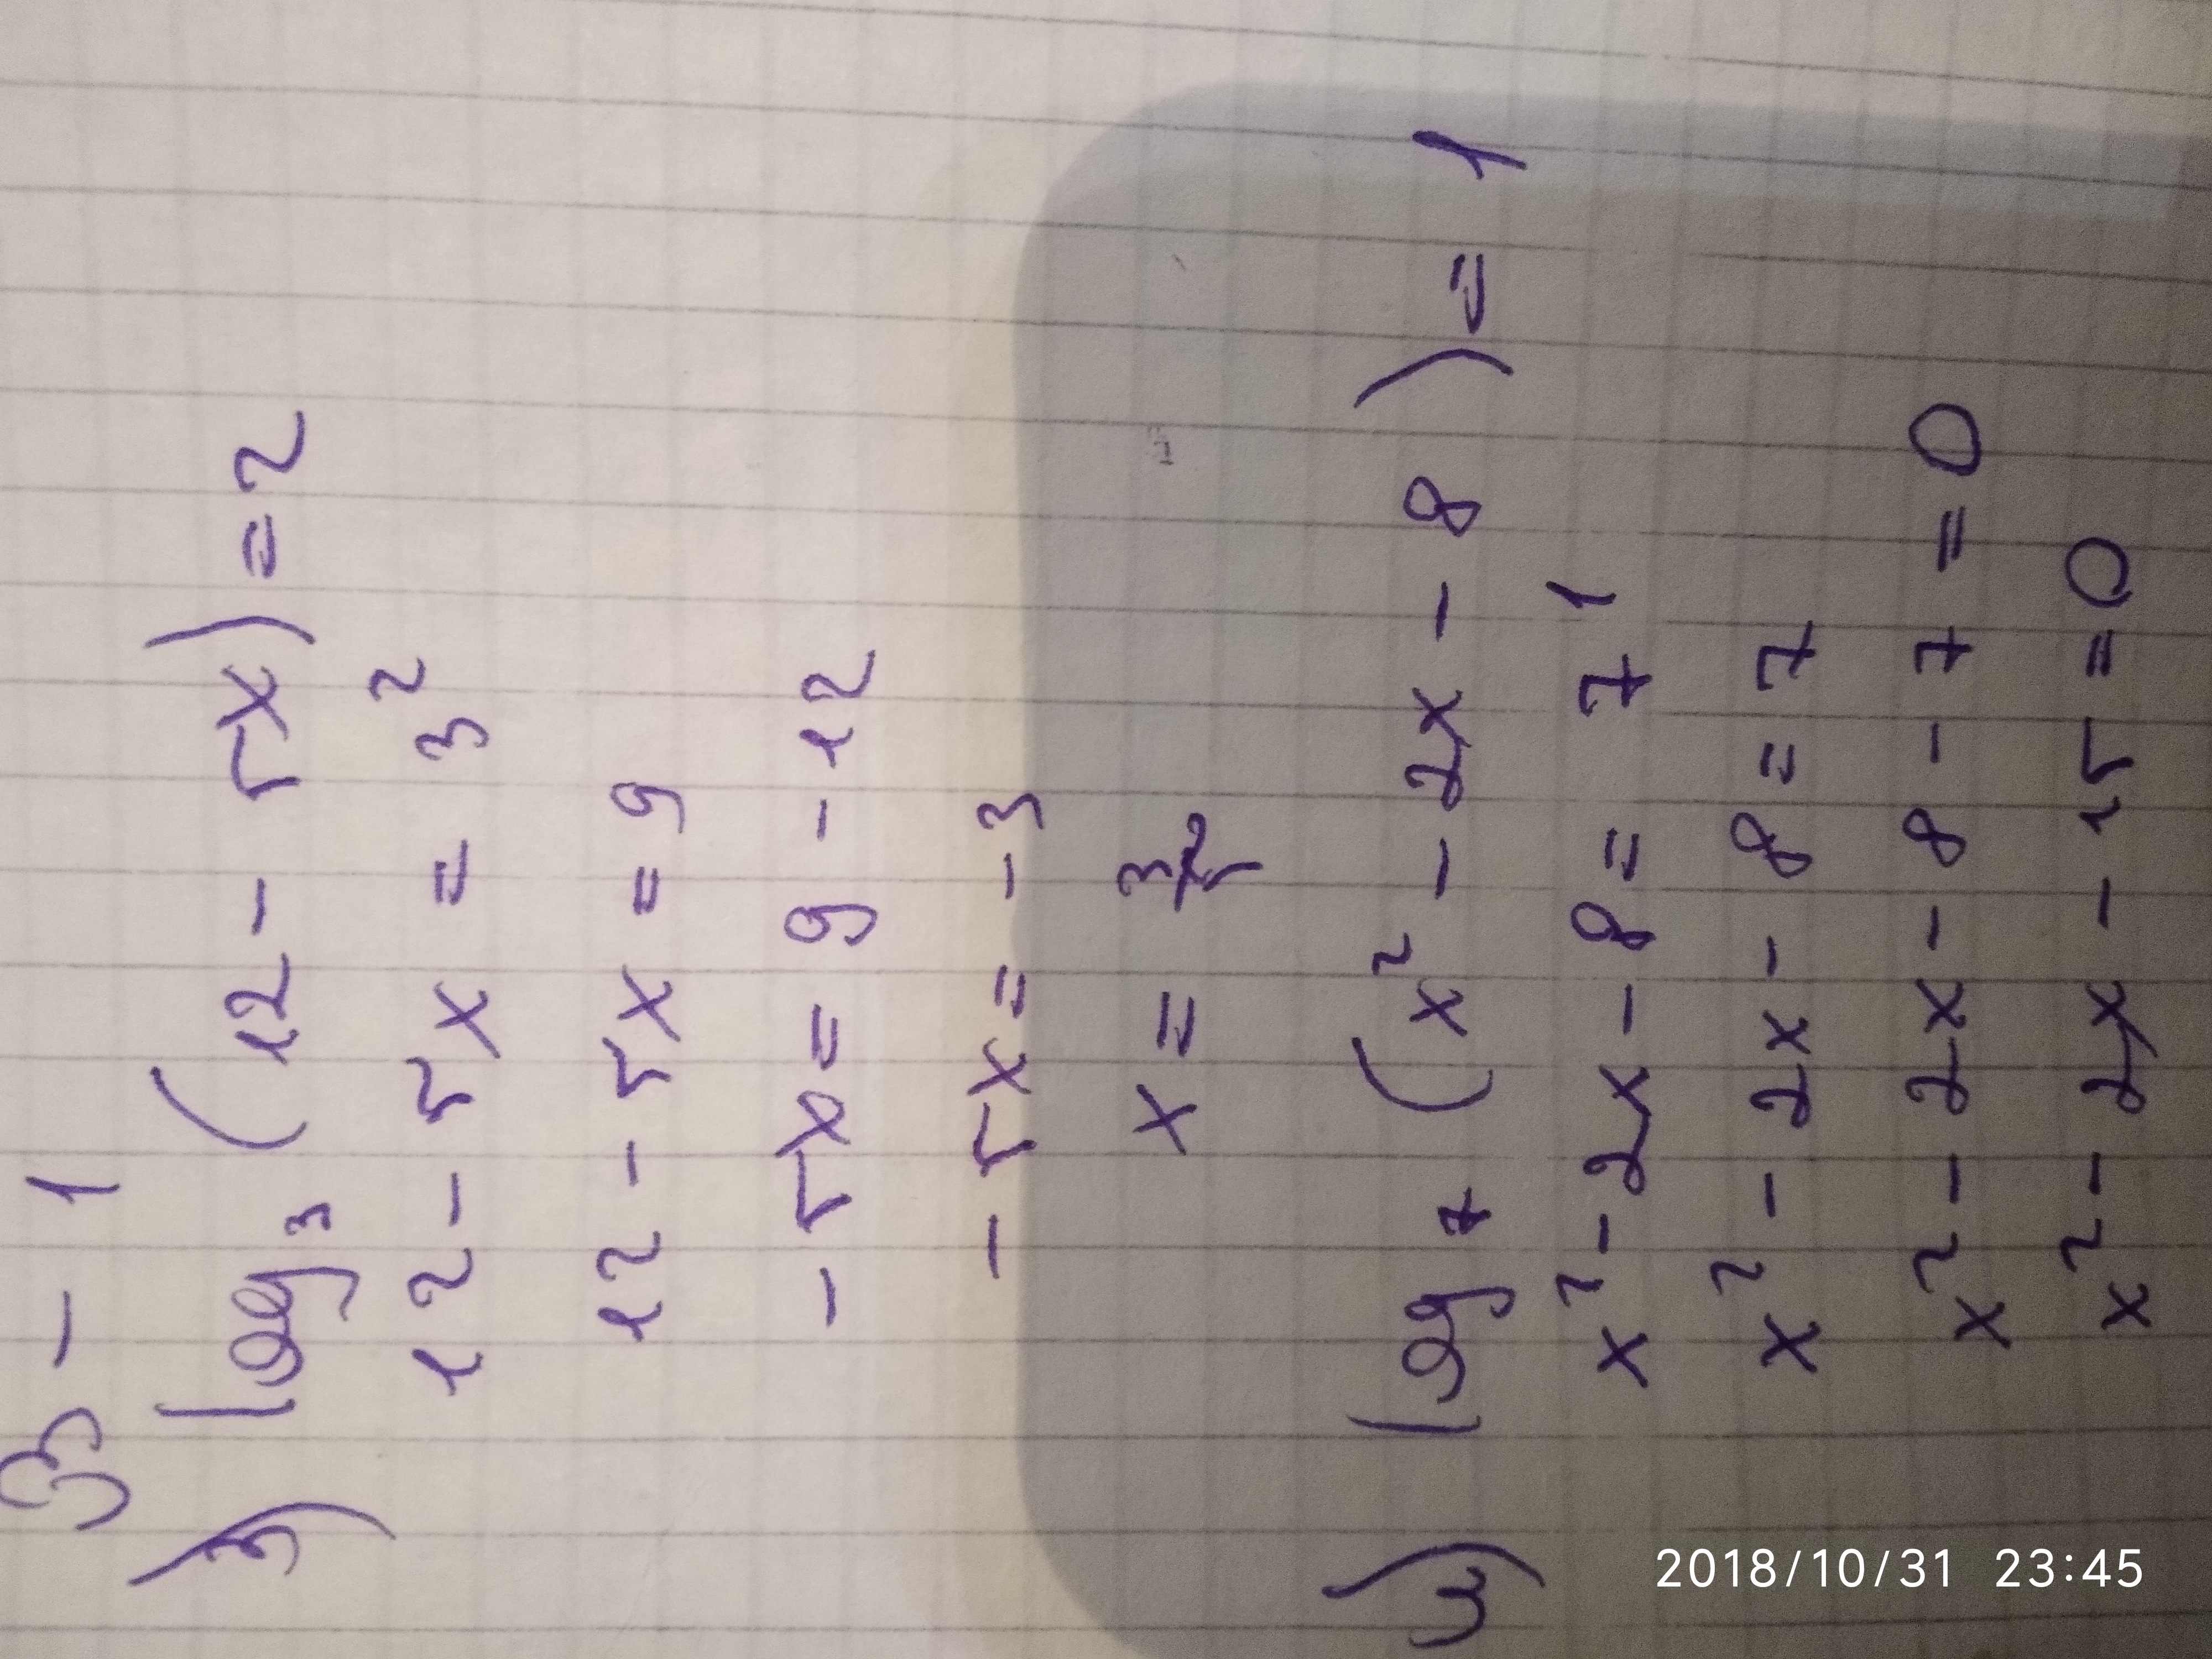 3 - 1
з) log₃ (12 - 5x) = 2
12 - 5x = 3²
12 - 5x = 9
- 5x = 9 - 12
- 5x = - 3
x = 3/5
и) log₇ (x² - 2x - 8) = 1
x² - 2x - 8 = 7¹
x² - 2x - 8 = 7
x² - 2x - 8 - 7 = 0
x² - 2x - 15 = 0
2018/10/31 23:45